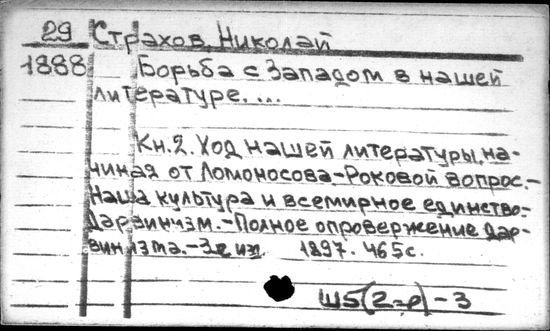 29 Страхов, Николай
1888 Борьба с Западом в нашей
литературе. ...
Кн.2. Ход нашей литературы, на-
чиная от Ломоносова.-Роковой вопрос.-
Наша культура и всемирное единство.-
Дарвинизм.-Полное опровержение дар-
винизма.- 1897. 465с.
Ш5(2=р)-3